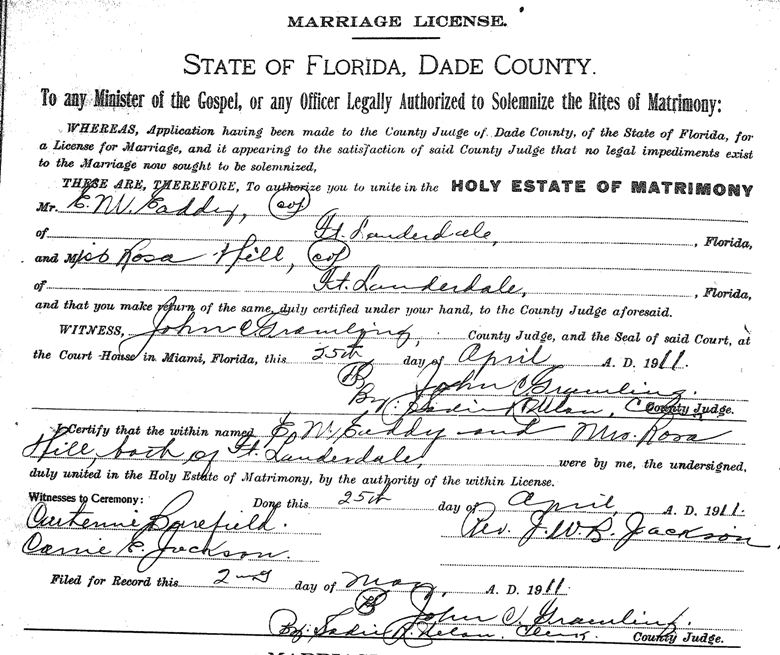 MARRIAGE LICENSE.
STATE OF FLORIDA, DADE COUNTY.
To any Minister of the Gospel, or any Officer Legally Authorized to Solemnize the Rites of Matrimony:
WHEREAS, Application having been made to the County Judge of Dade County, of the State of Florida, for
a License for Marriage, and it appearing to the satisfaction of said County Judge that no legal impediments exist
to the Marriage now sought to be solemnized,
THESE ARE, THEREFORE, To authorize you to unite in the HOLY ESTATE OF MATRIMONY
Mr. E. W. Eaddy, (col)
of Ft. Lauderdale, , Florida,
and Miss Rosa Hill, (col)
of Ft. Lauderdale, , Florida,
and that you make return of the same, duly certified under your hand, to the County Judge aforesaid.
WITNESS, John C. Gramling, County Judge, and the Seal of said Court, at
the Court House in Miami, Florida, this 25th day of April A. D. 1911.
John C. Gramling.
By Sadie R. Nelan, County Judge.
I Certify that the within named E. W. Eaddy and Mrs. Rosa
Hill, both of Ft. Lauderdale, were by me, the undersigned,
duly united in the Holy Estate of Matrimony, by the authority of the within License.
Witnesses to Ceremony: Done this 25th day of April, A. D. 1911.
Barefield. Rev. J. W. B. Jackson
Carrie E. Jackson.
Filed for Record this 2nd day of May, A. D. 1911
John C. Gramling.
By Sadie R. Nelan, Clerk. County Judge.